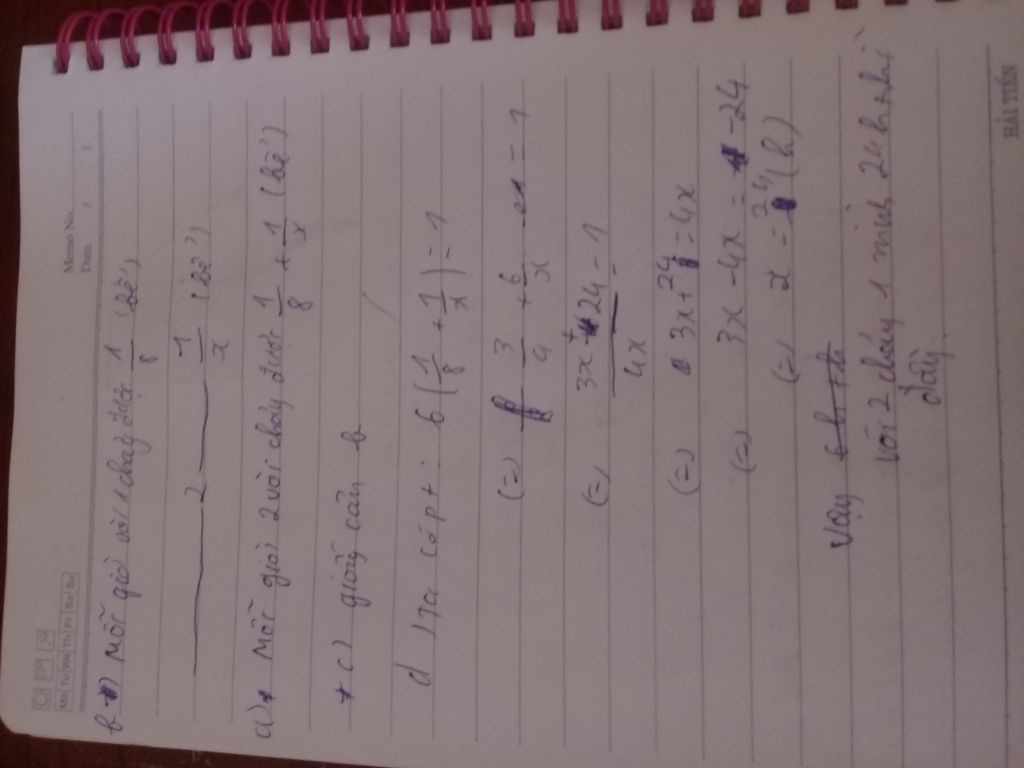 Memo No.
Date / /
Mo Tu We Th Fr Sa Su
b) Mỗi giờ vòi 1 chảy được 1/8 (bể)
2 1/x (bể)
a) Mỗi giờ 2 vòi chảy được 1/8 + 1/x (bể)
* c) giống câu b
d) Ta có pt : 6 (1/8 + 1/x) = 1
(=) 3/4 + 6/x = 1
(=) 3x + 24 / 4x = 1
(=) 3x + 24 = 4x
(=) 3x - 4x = -24
(=) x = 24 (h)
Vậy
vòi 2 chảy 1 mình 24h thì
đầy
HẢI TIẾN